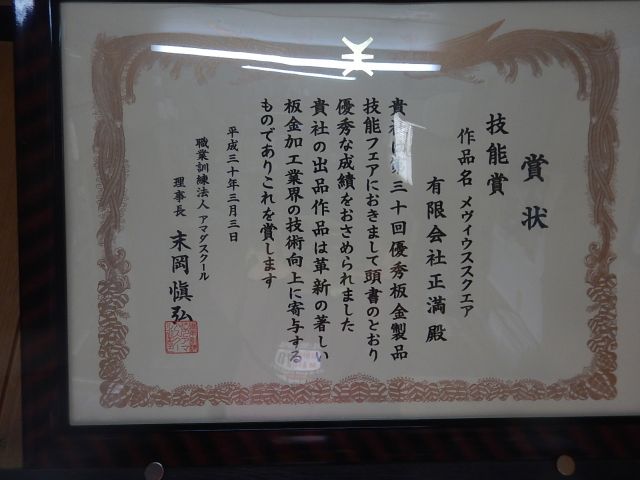 賞状
技能賞
作品名 メヴィウススクエア
有限会社正満 殿
貴社は第三十回優秀板金製品
技能フェアにおきまして頭書のとおり
優秀な成績をおさめられました
貴社の出品作品は革新の著しい
板金加工業界の技術向上に寄与する
ものでありこれを賞します
平成三十年三月三日
職業訓練法人 アマダスクール
理事長 末岡愼弘